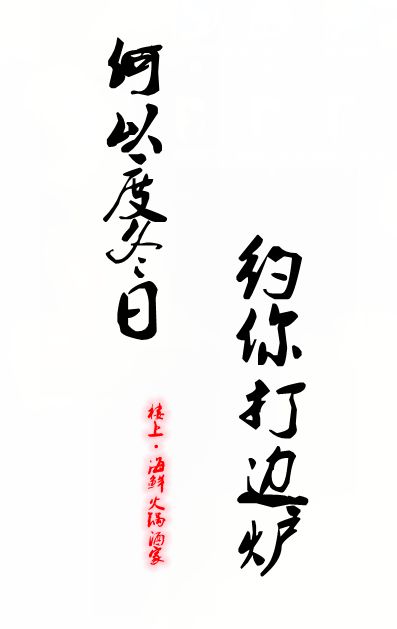 何以度冬日
约你打边炉
楼上·海鲜火锅酒家